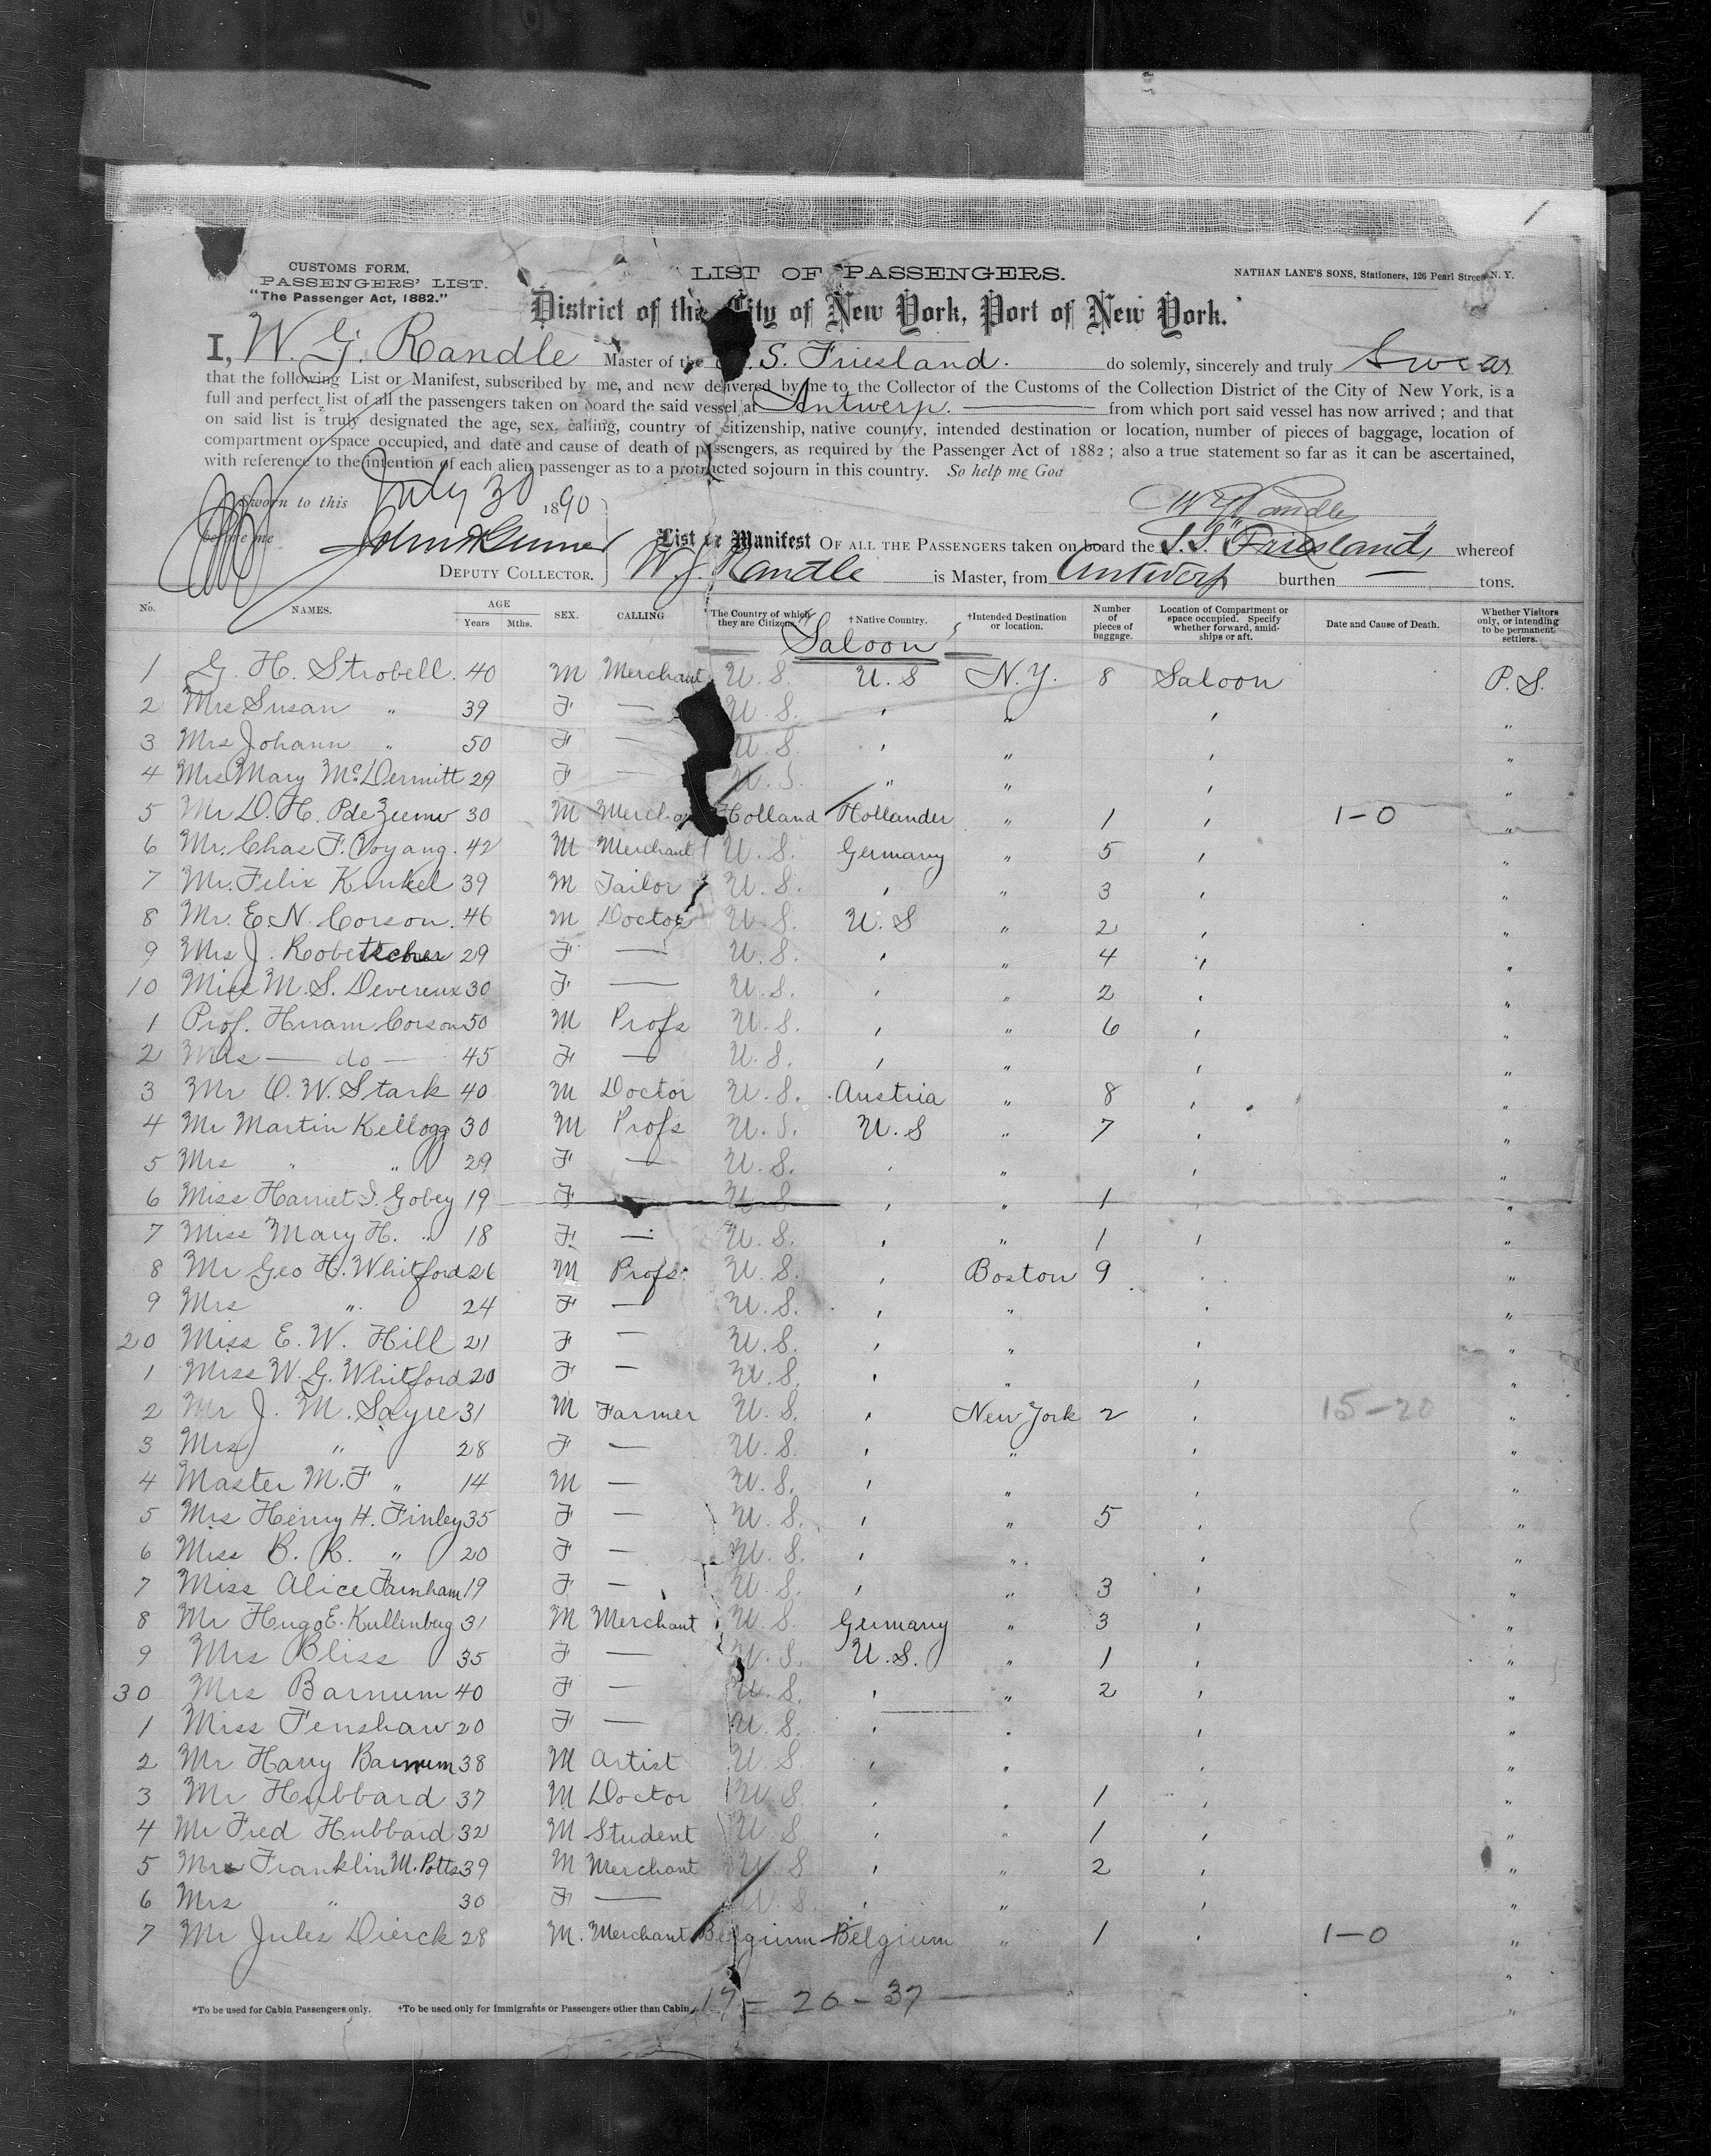 1
CUSTOMS FORM,
PASSENGERS' LIST.
"The Passenger Act, 1882."
LIST OF PASSENGERS.
NATHAN LANE'S SONS, Stationers, 126 Pearl Street N. Y.
District of the City of New York, Port of New York.
I, W. G. Randle Master of the S. Friesland. do solemnly, sincerely and truly Swear
that the following List or Manifest, subscribed by me, and now delivered by me to the Collector of the Customs of the Collection District of the City of New York, is a
full and perfect list of all the passengers taken on board the said vessel at Antwerp. from which port said vessel has now arrived; and that
on said list is truly designated the age, sex, calling, country of citizenship, native country, intended destination or location, number of pieces of baggage, location of
compartment or space occupied, and date and cause of death of passengers, as required by the Passenger Act of 1882; also a true statement so far as it can be ascertained,
with reference to the intention of each alien passenger as to a protracted sojourn in this country. So help me God
Sworn to this July 30 1890
W G Randle
before me
DEPUTY COLLECTOR.
List or Manifest OF ALL THE PASSENGERS taken on board the S.S. "Friesland" whereof
W. G. Randle is Master, from Antwerp burthen tons.
No. NAMES. AGE Years Mths. SEX. CALLING The Country of which they are Citizens †Native Country. †Intended Destination or location. Number of pieces of baggage. Location of Compartment or space occupied. Specify whether forward, amidships or aft. Date and Cause of Death. Whether Visitors only, or intending to be permanent settlers.
Saloon
1 G. H. Strobell. 40 M Merchant U. S. U. S N. Y. 8 Saloon P. S.
2 Mrs Susan " 39 F — U. S. " " " "
3 Mrs Johann " 50 F — U. S. " " " "
4 Mrs Mary McDermitt 29 F — U. S. " " " "
5 Mr D. H. 30 M Merchant Holland Hollander " 1 " 1-0 "
6 Mr. Chas F. 42 M Merchant U. S. Germany " 5 " "
7 Mr. Felix Kunkel 39 M Tailor U. S. " " 3 " "
8 Mr. E. N. Corson. 46 M Doctor U. S. U. S " 2 " "
9 Mrs J. 29 F — U. S. " " 4 " "
10 Miss M. S. Devereux 30 F — U. S. " " 2 " "
1 Prof. Hiram Corson 50 M Profs U. S. " " 6 " "
2 Mrs — do — 45 F — U. S. " " " "
3 Mr O. W. Stark 40 M Doctor U. S. Austria " 8 " "
4 Mr Martin Kellogg 30 M Profs U. S. U. S " 7 " "
5 Mrs " " 29 F — U. S. " " " "
6 Miss Harriet S. Gobey 19 F — U. S " " 1 " "
7 Miss Mary H. " 18 F — U. S. " " 1 " "
8 Mr Geo H. Whitford 26 M Profs. U. S. " Boston 9 " "
9 Mrs " 24 F — U. S. " " " "
20 Miss E. W. Hill 21 F — U. S. " " " "
1 Miss W. G. Whitford 20 F — U. S. " " " "
2 Mr J. M. Sayre 31 M Farmer U. S. " New York 2 " 15-20 "
3 Mrs " 28 F — U. S. " " " "
4 Master M. F " 14 M — U. S. " " " "
5 Mrs Henry H. Finley 35 F — U. S. " " 5 " "
6 Miss B. B. " 20 F — U. S. " " " "
7 Miss Alice Farnham 19 F — U. S. " " 3 " "
8 Mr Hugo E. Kullenberg 31 M Merchant U. S. Germany " 3 " "
9 Mrs Bliss 35 F — U. S. U. S. " 1 " "
30 Mrs Barnum 40 F — U. S. " " 2 " "
1 Miss Fenshaw 20 F — U. S. " " " "
2 Mr Harry Barnum 38 M Artist U. S. " " " "
3 Mr Hubbard 37 M Doctor U. S. " " 1 " "
4 Mr Fred Hubbard 32 M Student U. S " " 1 " "
5 Mr Franklin M. Potts 39 M Merchant U. S " " 2 " "
6 Mrs " 30 F — U. S. " " " "
7 Mr Jules Dierck 28 M. Merchant Belgium Belgium " 1 " 1-0 "
"
17 - 20 - 37 "
*To be used for Cabin Passengers only. †To be used only for Immigrants or Passengers other than Cabin.